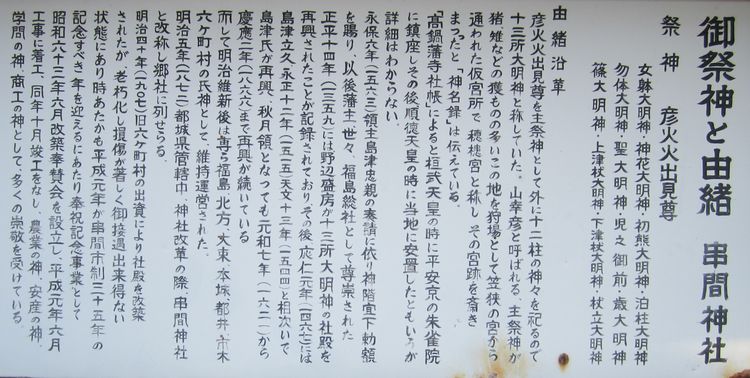 御祭神と由緒 串間神社
祭神 彦火火出見尊
女躰大明神・神花大明神・初熊大明神・泊柱大明神
勿体大明神・聖大明神・児之御前・歳大明神
篠大明神・上津杖大明神・下津杖大明神・杖立大明神
由緒沿革
彦火火出見尊を主祭神として外に十二柱の神々を祀るので
十三所大明神と称していた。山幸彦と呼ばれる、主祭神が
猪雉などの獲もの多いこの地を狩場として笠狭の宮から
通われた仮宮所で、穂穂宮と称し、その宮跡を斎き
まつったと、「神名録」は伝えている。
「高鍋藩寺社帳」によると桓武天皇の時に平安京の朱雀院
に鎮座しその後順徳天皇の時に当地に安置したともいうが
詳細はわからない。
永保六年(一五六三)領主島津忠親の奏請に依り神階宣下勅額
を賜り、以後藩主世々、福島総社として尊崇された
正平十四年(一三五九)には野辺盛房が十三所大明神の社殿を
再興されたことが記録されており、その後応仁元年(一四六七)には
島津立久、永正十二年(一五一五)天文十三年(一五四四)と相次いで
島津氏が再興、秋月領となっても元和七年(一六二一)から
慶應二年(一八六六)まで再興が続いている
而して明治維新後は専ら福島、北方、大束、本城、都井、市木
六ケ町村の氏神として、維持運営された。
明治五年(一八七二)都城県管轄中、神社改革の際、串間神社
と改称し郷社に列せらる。
明治四十年(一九〇七)旧六ケ町村の出資により社殿を改築
されたが、老朽化し損傷が著しく御接遇出来得ない
状態にあり時あたかも平成元年が串間市制三十五年の
記念すべき年を迎えるにあたり奉祝記念事業として
昭和六十三年六月改築奉賛会を設立し、平成元年六月
工事に着工、同年十月竣工をなし、農業の神、安産の神、
学問の神、商工の神として、多くの崇敬を受けている